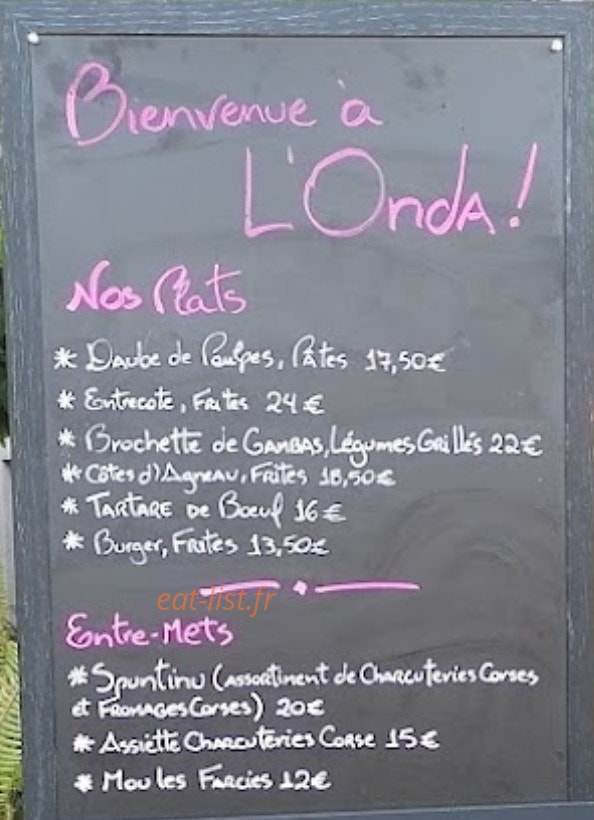 Bienvenue à
L'Onda !
Nos Plats
* Daube de Poulpes, Pâtes 17,50€
* Entrecote, Frites 24€
* Brochette de GAMBAS, Légumes Grillés 22€
* Côtes d'Agneau, Frites 18,50€
* TARTARE DE Bœuf 16€
* Burger, Frites 13,50€
eat-list.fr
Entre-Mets
* Spuntinu (Assortiment de Charcuteries Corses
et FROMAGES Corses) 20€
* Assiette Charcuteries Corse 15€
* Moules Farcies 12€